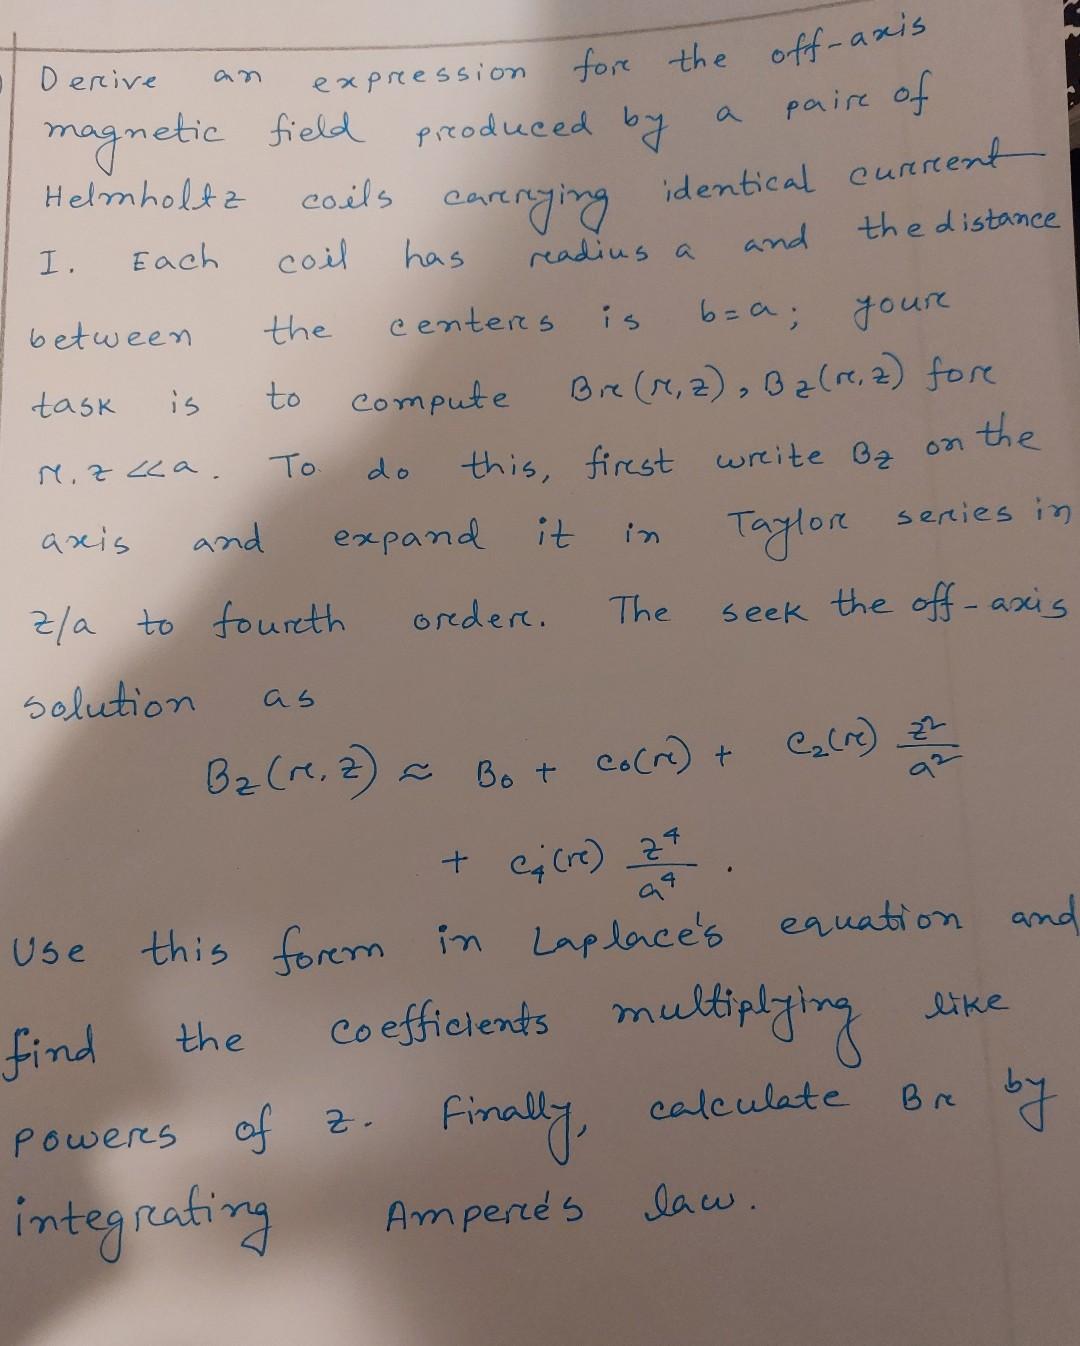 Derive an expression for the off-axis
magnetic field produced by a pair of
Helmholtz coils carrying identical current
I. Each coil has radius a and the distance
between the centers is b=a; your
task is to compute Br(r,z), Bz(r,z) for
r,z <<a. To do this, first write Bz on the
axis and expand it in Taylor series in
z/a to fourth order. The seek the off-axis
solution as
Bz(r,z) ≈ B0 + c0(r) + c2(r) z²/a²
+ c4(r) z⁴/a⁴.
Use this form in Laplace's equation and
find the coefficients multiplying like
powers of z. Finally, calculate Br by
integrating Ampere's law.